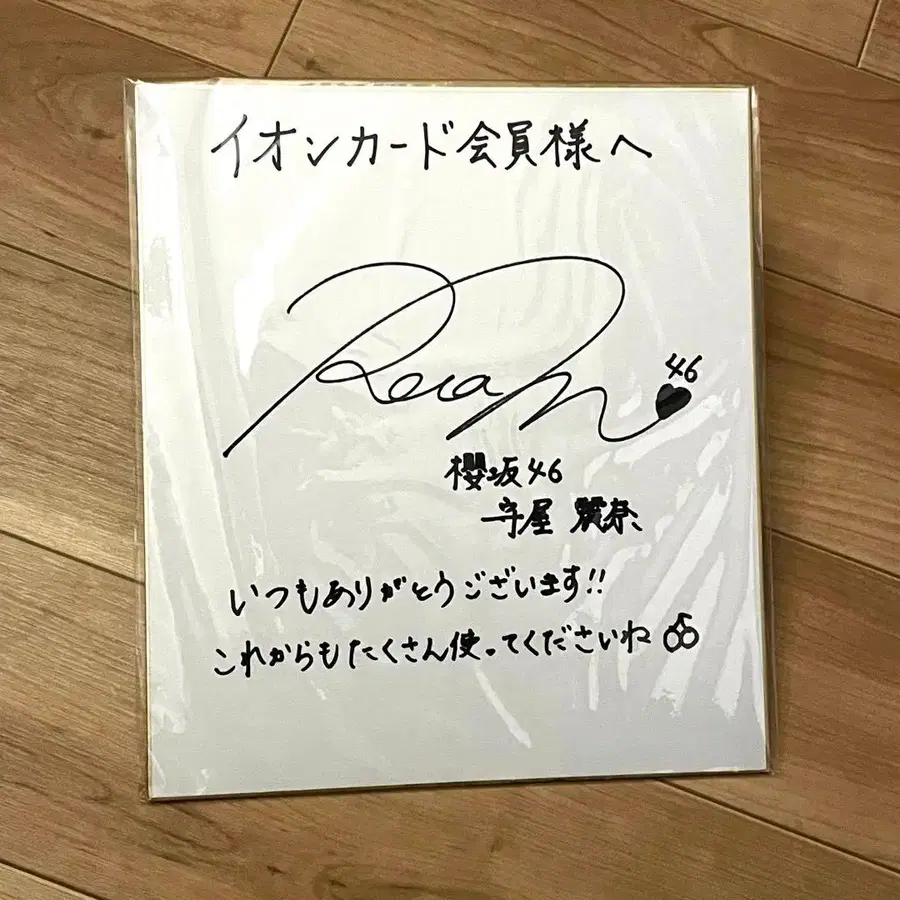 イオンカード会員様へ
Rena M
46
櫻坂46
守屋 麗奈
いつもありがとうございます!!
これからもたくさん使ってくださいね